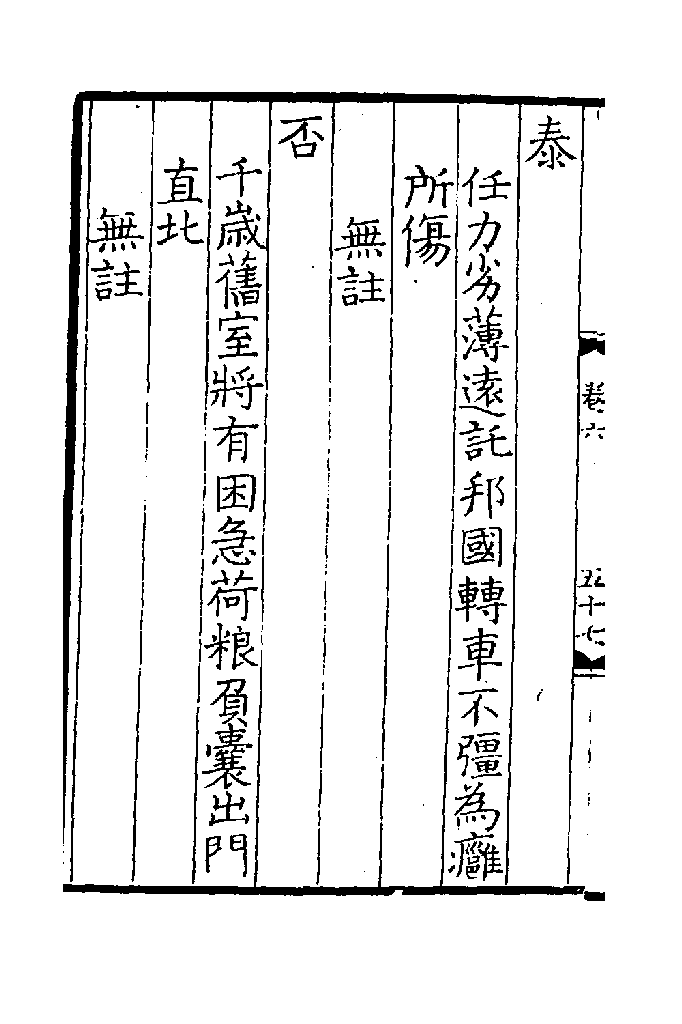 泰
任力劣薄遠託邦國轉車不彊為癰
所傷
無註
否
千歳舊室將有困急荷粮負囊出門
直北
無註
卷六
五十七